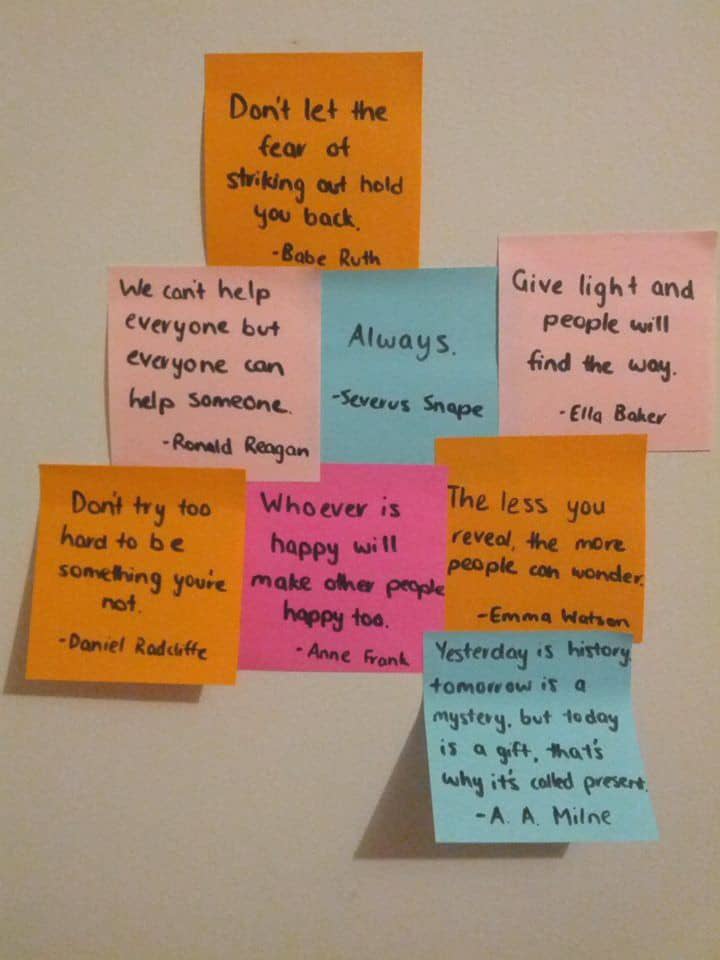 Don't let the
fear of
striking out hold
you back.
-Babe Ruth
We can't help
everyone but
everyone can
help someone.
-Ronald Reagan
Always.
-Severus Snape
Give light and
people will
find the way.
-Ella Baker
Don't try too
hard to be
something you're
not.
-Daniel Radcliffe
Whoever is
happy will
make other people
happy too.
-Anne Frank
The less you
reveal, the more
people can wonder.
-Emma Watson
Yesterday is history,
tomorrow is a
mystery, but today
is a gift, that's
why it's called present.
-A. A. Milne